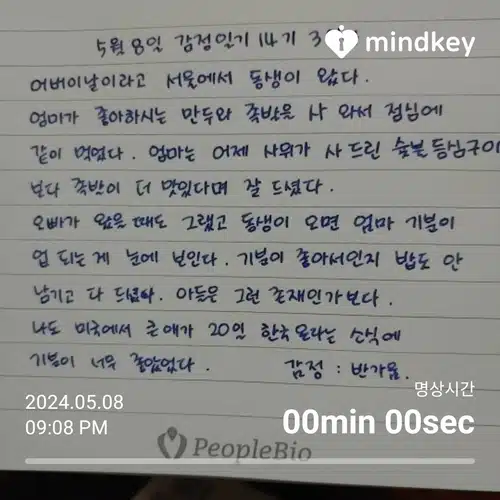 5월 8일 감정일기 14기 3
mindkey
어버이날이라고 서울에서 동생이 왔다.
엄마가 좋아하시는 만두와 족발을 사 와서 점심에
같이 먹었다. 엄마는 어제 사위가 사 드린 숯불등심구이
보다 족발이 더 맛있다며 잘 드셨다.
오빠가 왔을 때도 그랬고 동생이 오면 엄마 기분이
업 되는게 눈에 보인다. 기분이 좋아서인지 밥도 안
남기고 다 드셨다. 아들은 그런 존재인가보다.
나도 미국에서 큰애가 20일 한국 온다는 소식에
기분이 너무 좋았었다. 감정 : 반가움.
명상시간
2024.05.08
00min 00sec
09:08 PM
PeopleBio